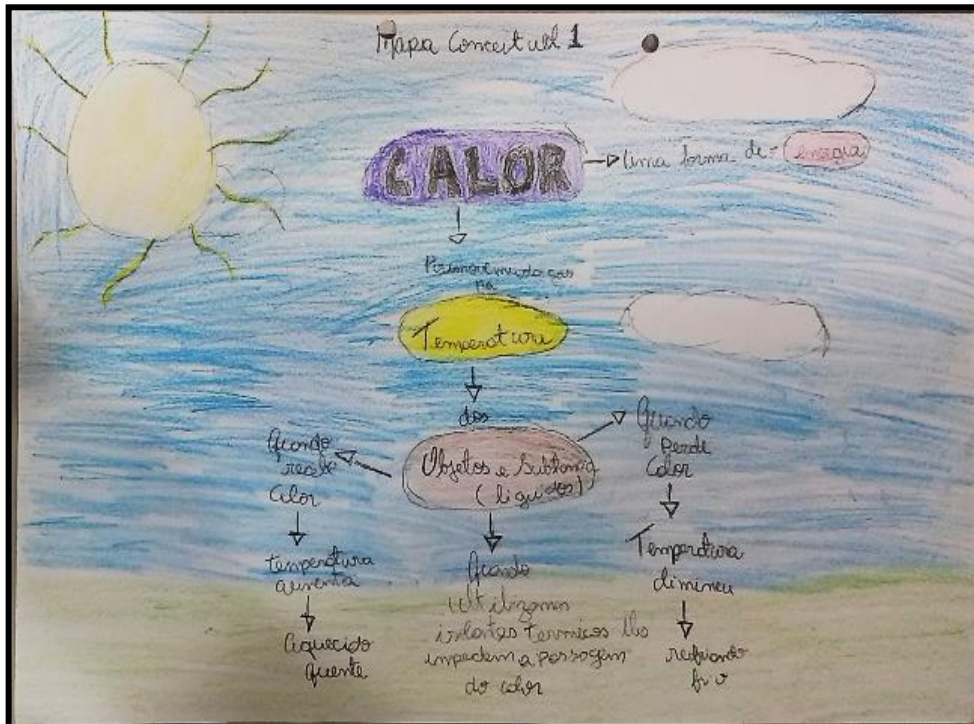 Mapa Conceitual 1
CALOR
Uma forma de
energia
na
Temperatura
dos
Objetos e Subtanci
(liguidos)
Quando
recebe
Calor
temperatura
aumenta
Aquecido
quente
Quando
Utilizamos
isolantes termicos
impedem a passagem
do calor
Quando
perde
Calor
Temperatura
dimineu
resfriando
frio